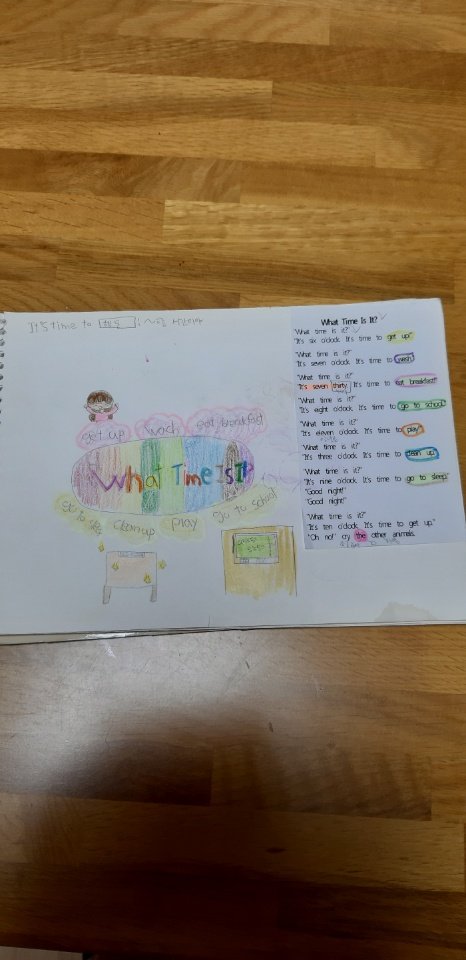 It's time to 행동 ! ~할 시간이야
get up
wach
eat breakfast
What Time Is It?
go to slee
clean up
play
go to school
What Time Is It?
"What time is it?"
"It's six o'clock. It's time to get up."
"What time is it?"
"It's seven o'clock. It's time to wash."
"What time is it?"
"It's seven thirty. It's time to eat breakfast."
"What time is it?"
"It's eight o'clock. It's time to go to school."
"What time is it?"
"It's eleven o'clock. It's time to play."
"What time is it?"
"It's three o'clock. It's time to clean up."
"What time is it?"
"It's nine o'clock. It's time to go to sleep."
"Good night!"
"Good night!"
"What time is it?"
"It's ten o'clock. It's time to get up."
"Oh no!" cry the other animals.